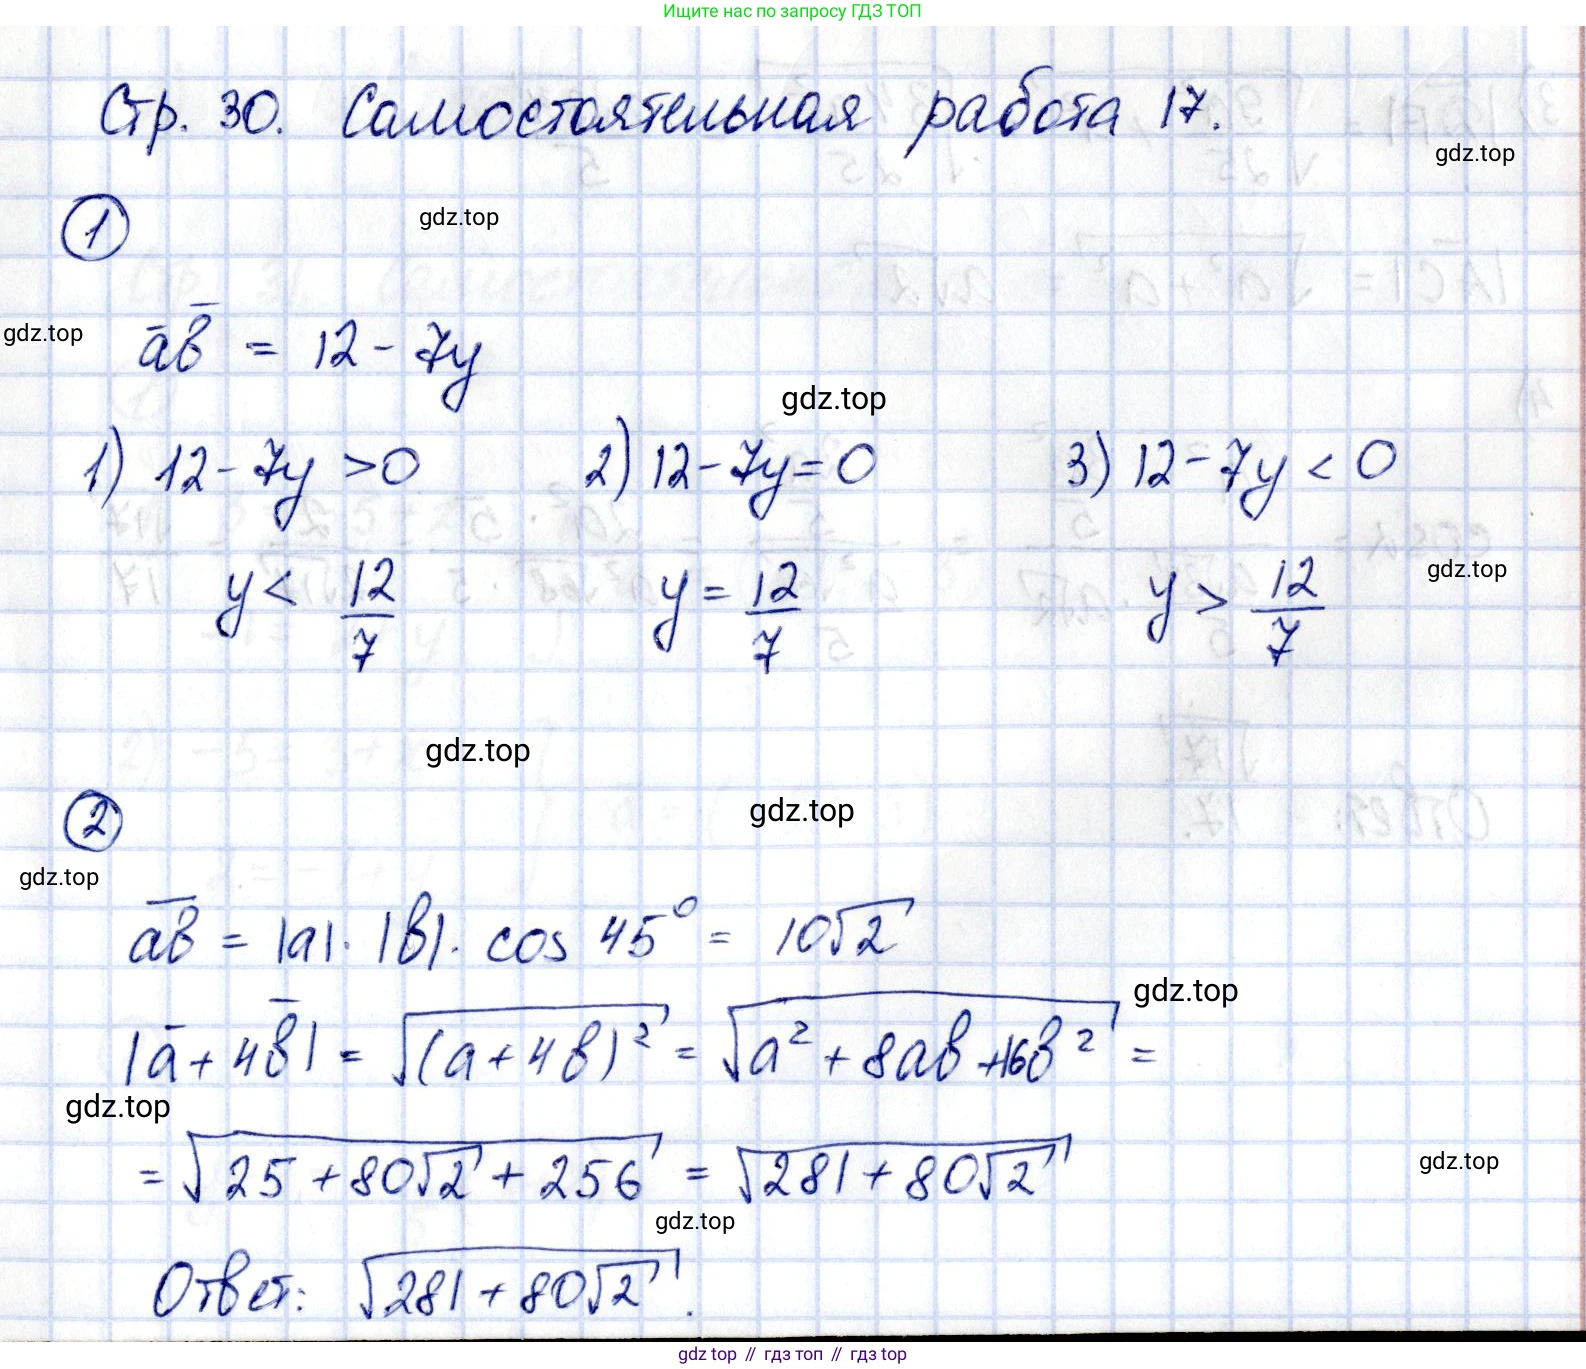 Ищите нас по запросу ГДЗ ТОП
Стр. 30. Самостоятельная работа 17.
gdz.top
1
gdz.top
a̅b̅ = 12 - 7y
gdz.top
gdz.top
1) 12 - 7y > 0 2) 12 - 7y = 0 3) 12 - 7y < 0
y < 12/7 y = 12/7 y > 12/7
gdz.top
gdz.top
gdz.top
2
gdz.top
a̅b̅ = |a| · |b| · cos 45° = 10√2
gdz.top
|a̅ + 4b̅| = √((a + 4b)²) = √(a² + 8ab + 16b²) =
gdz.top
= √(25 + 80√2 + 256) = √(281 + 80√2)
gdz.top
gdz.top
Ответ: √(281 + 80√2).
gdz top // гдз топ // гдз top